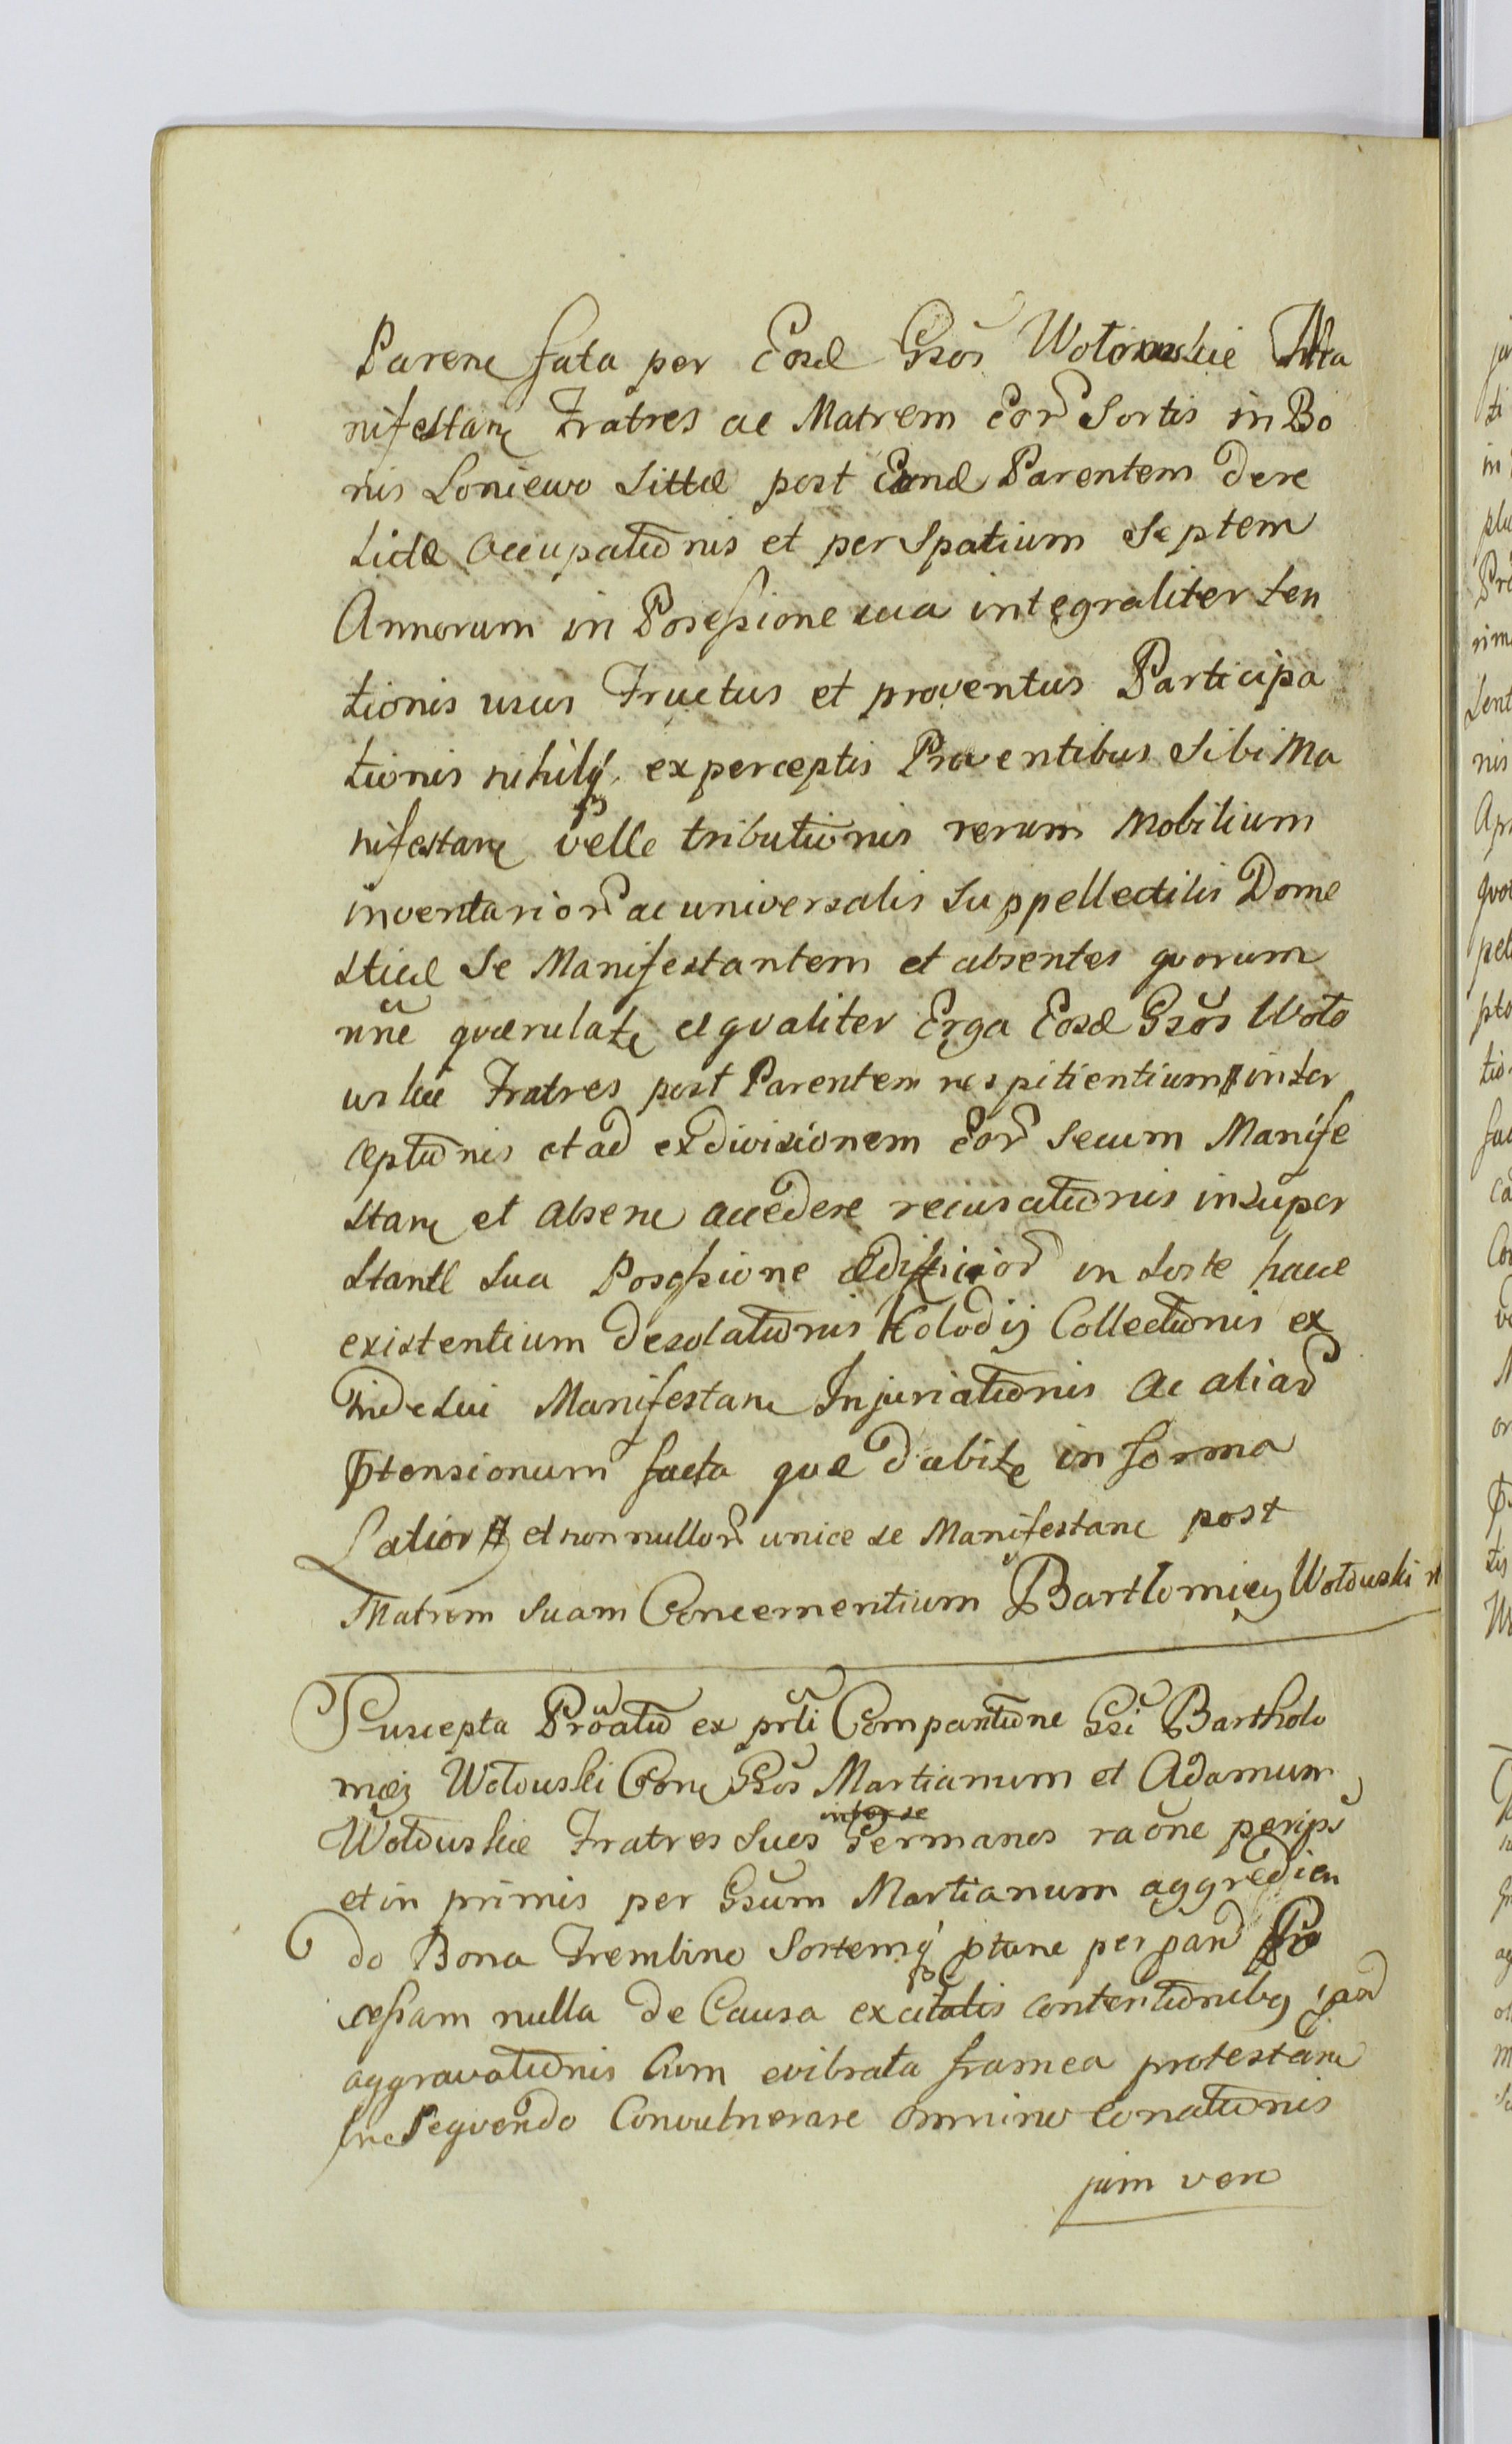 Parenē fata per Eosd Gsos Wotowskie Ma
nifestanē Fratres ac Matrem Eor Sortis in Bo
nis Loniewo Sittæ post Eund Parentem Dere
lictæ Occupationis et per Spatium Septem
Annorum in Posessione sua integraliter ten
tionis usus Fructus et proventus Participa
tionis nihilq ex perceptis Proventibus Sibi Ma
nifestanē velle tributionis rerum Mobilium
inventarior ac universalis Suppellectilis Dome
sticæ Se Manifestantem et absentes quorum
nne quærulatē æqualiter Erga Eosd Gsos Woto
uskie Fratres post Parentem respitientium inter
ceptionis et ad exdivisionem Eor Secum Manife
stanē et Absenē accedere recusationis insuper
Stante Sua Posessione Ædificior in Sorte hacce
existentium Desolationis Kolodij Collectionis ex
indeSui Manifestanē Injuriationis Ac aliar
ptensionum facta quæ Dabitē in forma
Latiori et nonnullor unice se Manifestanē post
Matrem Suam Concernentium Bartlomiey Wotouski
Suscepta Proatio ex prti Comparitione Gsi Bartholo
mæi Wotouski Conē Gsos Martianum et Adamum
inter se
Wotouskie Fratres Suos Germanos raone per ips
et in primis per Gsum Martianum aggredien
do Bona Trembino Sortemq ptanē per pard Pro
cessam nulla De Causa excitatis contentionibq pard
aggravationis Cum evibrata framea protestanē
Insequendo Convulnerare omnino Conationis
jam vero